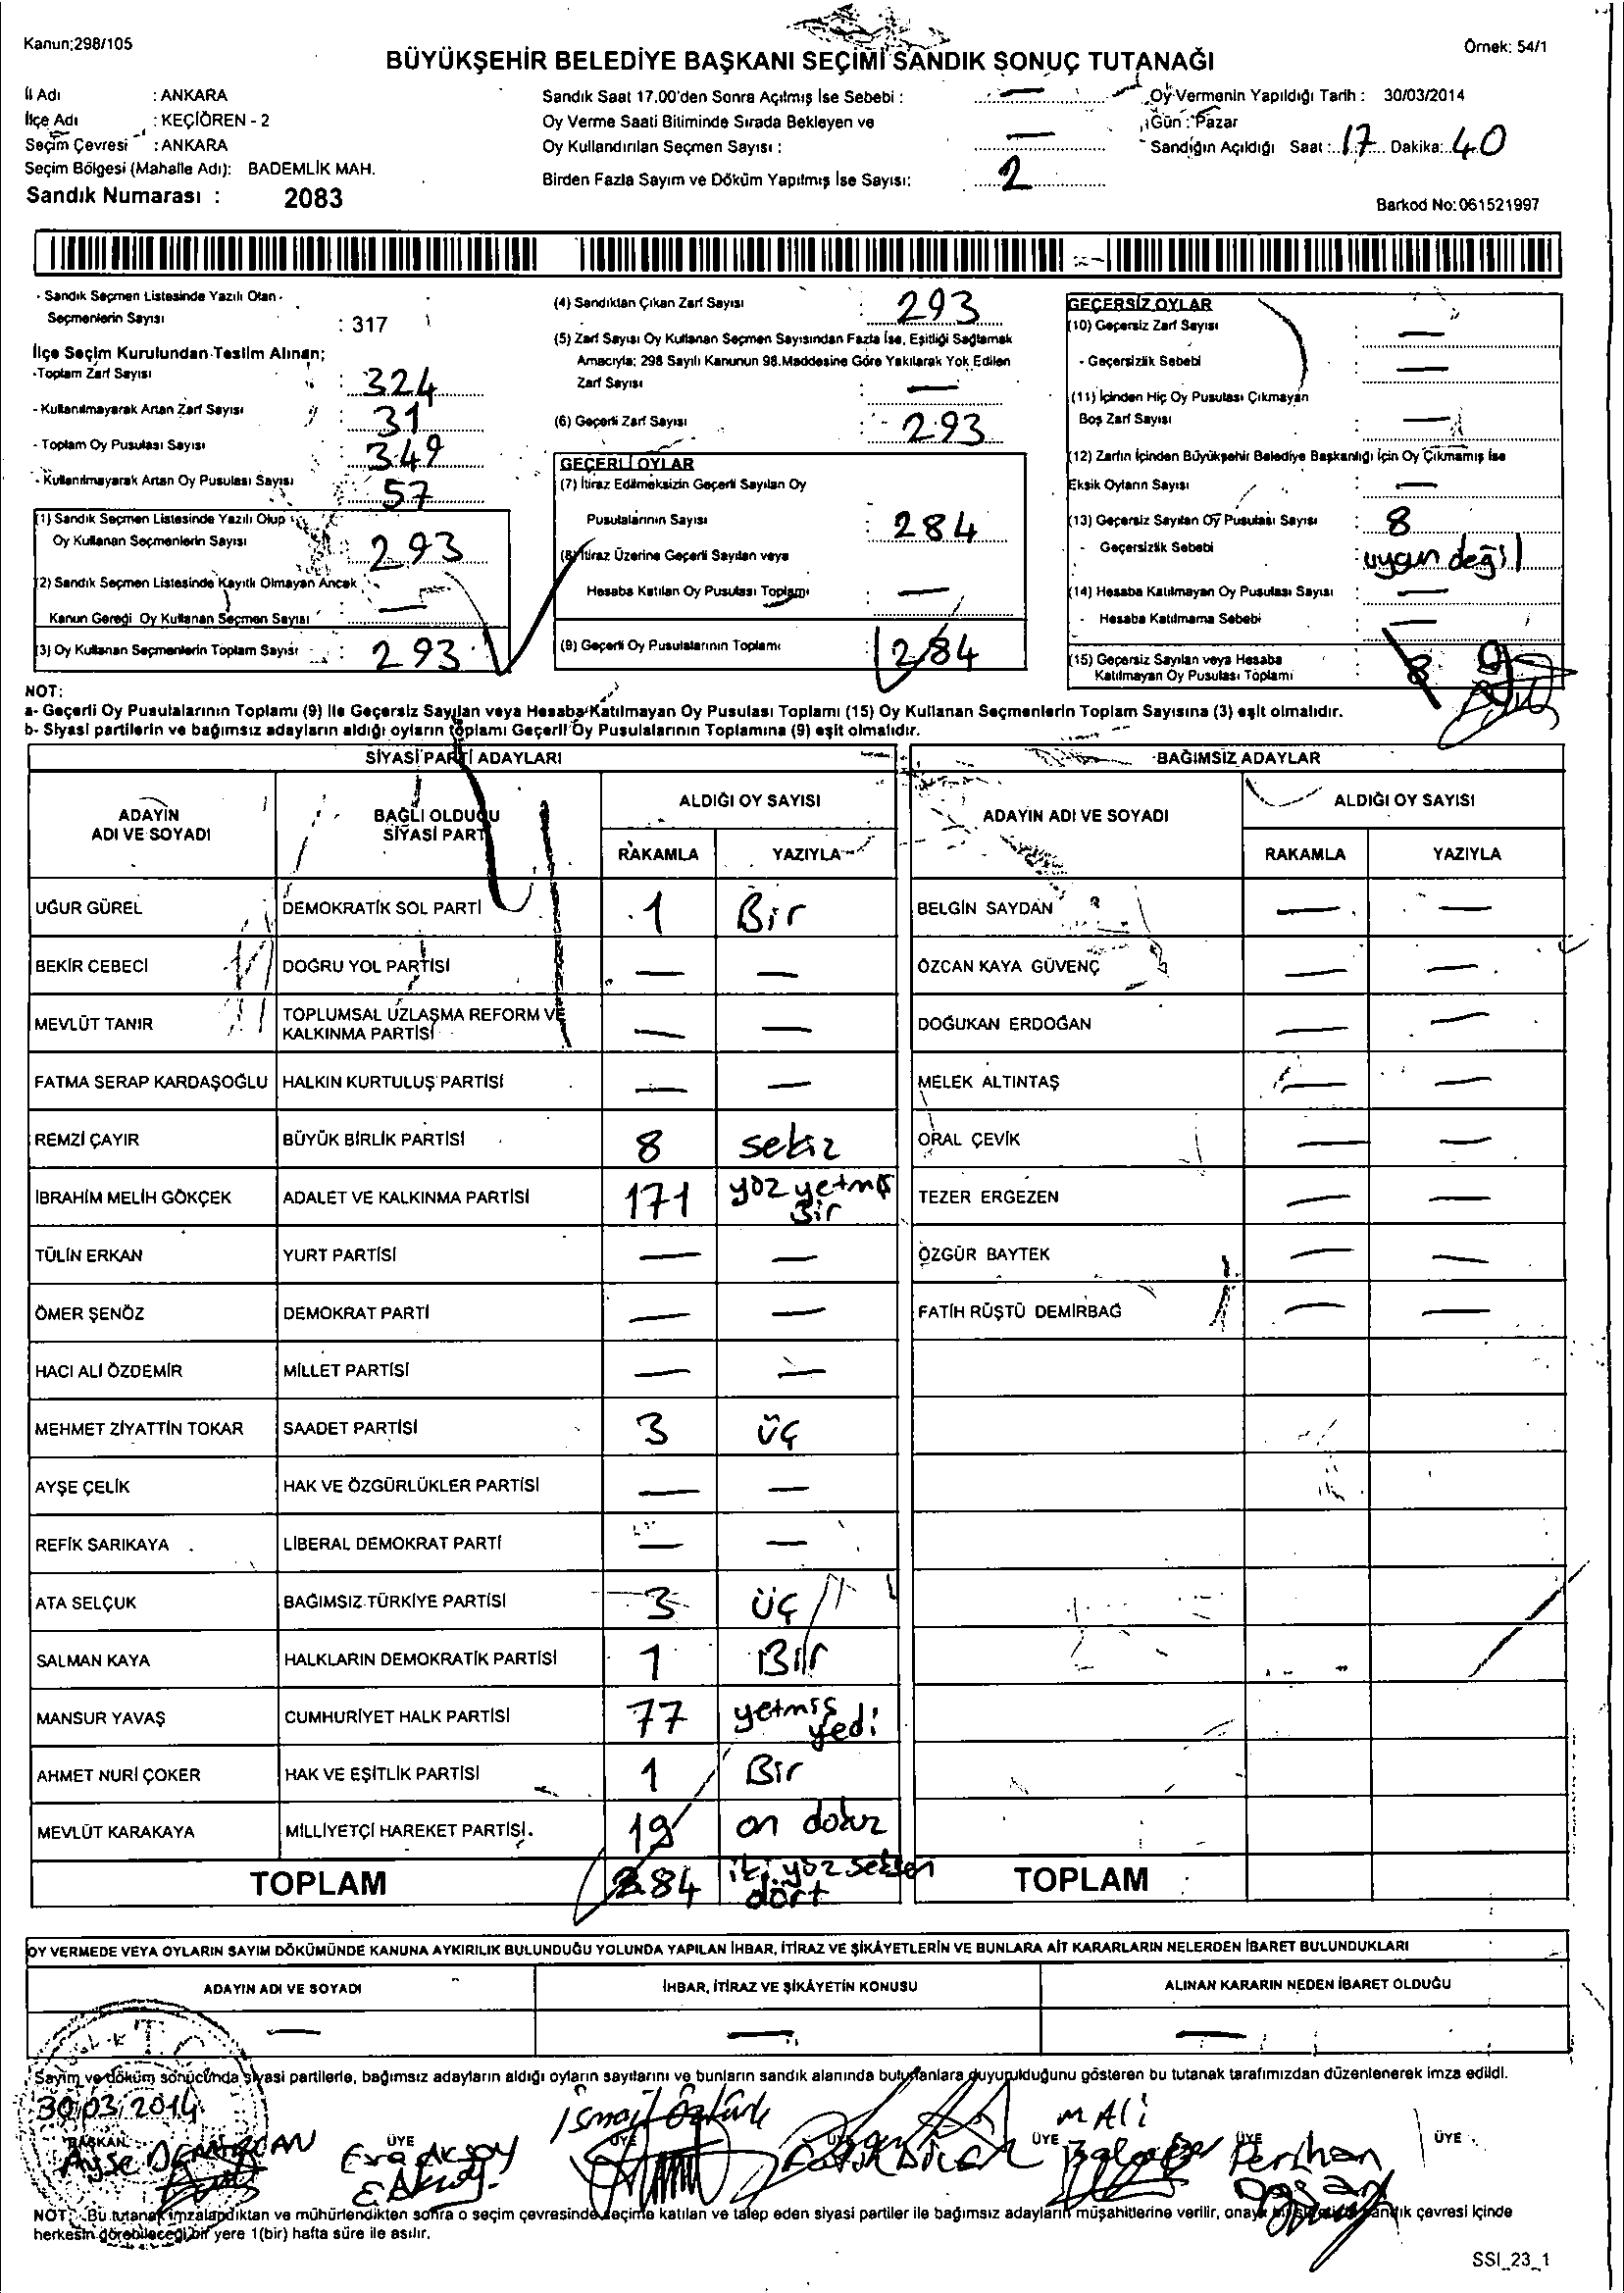 Kanun;298/105
Örnek: 54/1
BÜYÜKŞEHİR BELEDİYE BAŞKANI SEÇİMİ SANDIK SONUÇ TUTANAĞI
İl Adı : ANKARA
İlçe Adı : KEÇİÖREN - 2
Seçim Çevresi : ANKARA
Seçim Bölgesi (Mahalle Adı): BADEMLİK MAH.
Sandık Numarası : 2083
Sandık Saat 17.00'den Sonra Açılmış İse Sebebi : —
Oy Verme Saati Bitiminde Sırada Bekleyen ve
Oy Kullandırılan Seçmen Sayısı : —
Birden Fazla Sayım ve Döküm Yapılmış İse Sayısı: 2
Oy Vermenin Yapıldığı Tarih : 30/03/2014
Gün : Pazar
Sandığın Açıldığı Saat : 17 Dakika: 40
Barkod No:061521997
- Sandık Seçmen Listesinde Yazılı Olan
Seçmenlerin Sayısı : 317
İlçe Seçim Kurulundan Teslim Alınan;
-Toplam Zarf Sayısı : 324
- Kullanılmayarak Artan Zarf Sayısı : 31
- Toplam Oy Pusulası Sayısı : 349
- Kullanılmayarak Artan Oy Pusulası Sayısı : 57
(1) Sandık Seçmen Listesinde Yazılı Olup
Oy Kullanan Seçmenlerin Sayısı : 293
(2) Sandık Seçmen Listesinde Kayıtlı Olmayan Ancak
Kanun Gereği Oy Kullanan Seçmen Sayısı : —
(3) Oy Kullanan Seçmenlerin Toplam Sayısı : 293
(4) Sandıktan Çıkan Zarf Sayısı : 293
(5) Zarf Sayısı Oy Kullanan Seçmen Sayısından Fazla İse, Eşitliği Sağlamak
Amacıyla; 298 Sayılı Kanunun 98.Maddesine Göre Yakılarak Yok Edilen
Zarf Sayısı : —
(6) Geçerli Zarf Sayısı : 293
GEÇERLİ OYLAR
(7) İtiraz Edilmeksizin Geçerli Sayılan Oy
Pusulalarının Sayısı : 284
(8) İtiraz Üzerine Geçerli Sayılan veya
Hesaba Katılan Oy Pusulası Toplamı : —
(9) Geçerli Oy Pusulalarının Toplamı : 284
GEÇERSİZ OYLAR
(10) Geçersiz Zarf Sayısı : —
- Geçersizlik Sebebi : —
(11) İçinden Hiç Oy Pusulası Çıkmayan
Boş Zarf Sayısı : —
(12) Zarfın İçinden Büyükşehir Belediye Başkanlığı İçin Oy Çıkmamış İse
Eksik Oyların Sayısı : —
(13) Geçersiz Sayılan Oy Pusulası Sayısı : 8
- Geçersizlik Sebebi : uygun değil
(14) Hesaba Katılmayan Oy Pusulası Sayısı : —
- Hesaba Katılmama Sebebi : —
(15) Geçersiz Sayılan veya Hesaba
Katılmayan Oy Pusulası Toplamı : 8 9
NOT:
a- Geçerli Oy Pusulalarının Toplamı (9) ile Geçersiz Sayılan veya Hesaba Katılmayan Oy Pusulası Toplamı (15) Oy Kullanan Seçmenlerin Toplam Sayısına (3) eşit olmalıdır.
b- Siyasi partilerin ve bağımsız adayların aldığı oyların toplamı Geçerli Oy Pusulalarının Toplamına (9) eşit olmalıdır.
SİYASİ PARTİ ADAYLARI
BAĞIMSIZ ADAYLAR
ADAYIN ADI VE SOYADI
BAĞLI OLDUĞU SİYASİ PARTİ
ALDIĞI OY SAYISI
RAKAMLA YAZIYLA
ADAYIN ADI VE SOYADI
ALDIĞI OY SAYISI
RAKAMLA YAZIYLA
UĞUR GÜREL DEMOKRATİK SOL PARTİ 1 Bir BELGİN SAYDAN — —
BEKİR CEBECİ DOĞRU YOL PARTİSİ — — ÖZCAN KAYA GÜVENÇ — —
MEVLÜT TANIR TOPLUMSAL UZLAŞMA REFORM VE KALKINMA PARTİSİ — — DOĞUKAN ERDOĞAN — —
FATMA SERAP KARDAŞOĞLU HALKIN KURTULUŞ PARTİSİ — — MELEK ALTINTAŞ — —
REMZİ ÇAYIR BÜYÜK BİRLİK PARTİSİ 8 sekiz ORAL ÇEVİK — —
İBRAHİM MELİH GÖKÇEK ADALET VE KALKINMA PARTİSİ 171 yöz yetmiş Bir TEZER ERGEZEN — —
TÜLİN ERKAN YURT PARTİSİ — — ÖZGÜR BAYTEK — —
ÖMER ŞENÖZ DEMOKRAT PARTİ — — FATİH RÜŞTÜ DEMİRBAĞ — —
HACI ALİ ÖZDEMİR MİLLET PARTİSİ — —
MEHMET ZİYATTİN TOKAR SAADET PARTİSİ 3 üç
AYŞE ÇELİK HAK VE ÖZGÜRLÜKLER PARTİSİ — —
REFİK SARIKAYA LİBERAL DEMOKRAT PARTİ — —
ATA SELÇUK BAĞIMSIZ TÜRKİYE PARTİSİ 3 üç
SALMAN KAYA HALKLARIN DEMOKRATİK PARTİSİ 1 Bir
MANSUR YAVAŞ CUMHURİYET HALK PARTİSİ 77 yetmiş yedi
AHMET NURİ ÇOKER HAK VE EŞİTLİK PARTİSİ 1 Bir
MEVLÜT KARAKAYA MİLLİYETÇİ HAREKET PARTİSİ. 19 on dokuz
TOPLAM 284 iki yöz seksen dört TOPLAM
OY VERMEDE VEYA OYLARIN SAYIM DÖKÜMÜNDE KANUNA AYKIRILIK BULUNDUĞU YOLUNDA YAPILAN İHBAR, İTİRAZ VE ŞİKÂYETLERİN VE BUNLARA AİT KARARLARIN NELERDEN İBARET BULUNDUKLARI
ADAYIN ADI VE SOYADI İHBAR, İTİRAZ VE ŞİKÂYETİN KONUSU ALINAN KARARIN NEDEN İBARET OLDUĞU
— — —
Sayım ve döküm sonucunda siyasi partilerle, bağımsız adayların aldığı oyların sayılarını ve bunların sandık alanında bulunanlara duyurulduğunu gösteren bu tutanak tarafımızdan düzenlenerek imza edildi.
30/03/2014
İsmail Öztürk M Ali
BAŞKAN ÜYE ÜYE ÜYE ÜYE ÜYE ÜYE
Ayşe DEMİRCAN Esra Aksoy Perihan
NOT: Bu tutanak imzalandıktan ve mühürlendikten sonra o seçim çevresinde seçime katılan ve talep eden siyasi partiler ile bağımsız adayların müşahitlerine verilir, sandık çevresi içinde
herkesin görebileceği bir yere 1(bir) hafta süre ile asılır.
SSI_23_1